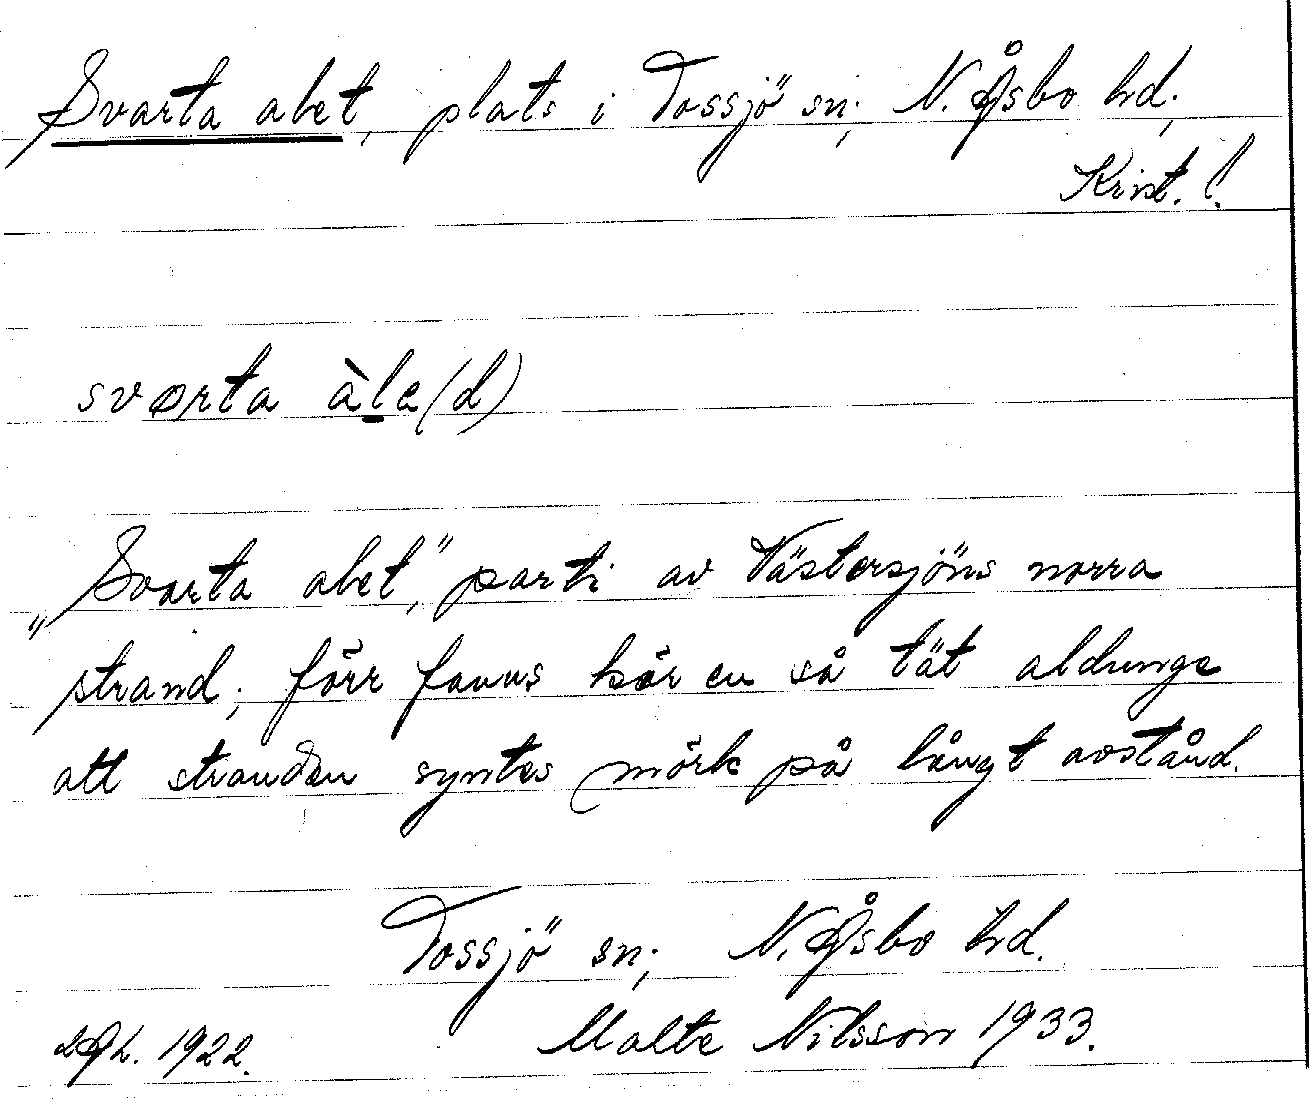 Svarta alet, plats i Tossjö sn; N. Åsbo hd;
Krist. l.
svarta àle(d)
"Svarta alet," parti av Västersjöns norra
strand; förr fanns här en så tät aldunge
att stranden syntes mörk på långt avstånd.
Tossjö sn; N. Åsbo hd.
1922. Malte Nilsson 1933.